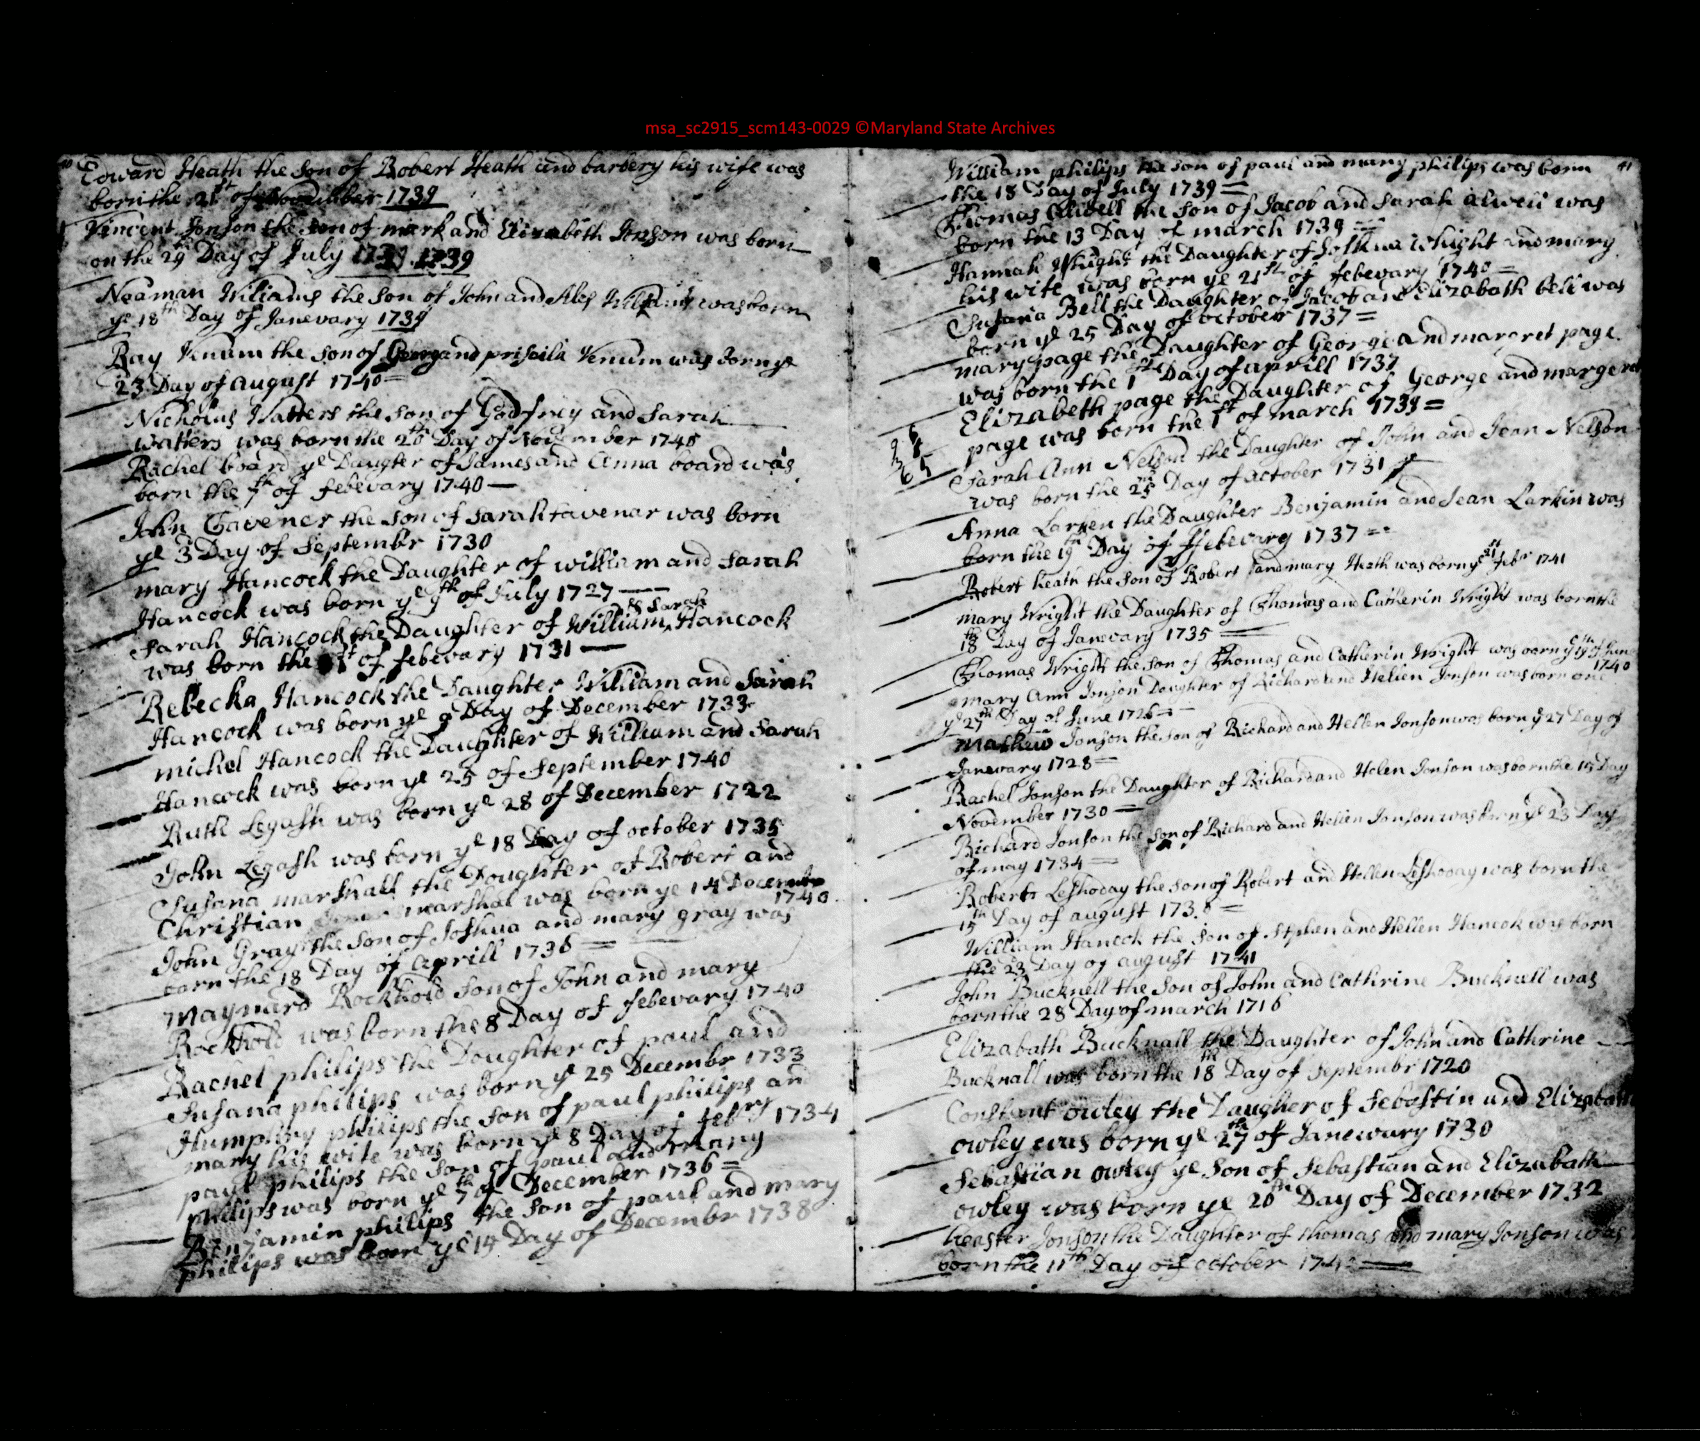 msa_sc2915_scm143-0029 ©Maryland State Archives
40
Edward Heath the son of Robert Heath and barbery his wife was
born the 21st of November 1739
Vincent Jonson the son of mark and Elizabeth Jonson was born
on the 29th Day of July 1739 1739
Neaman Wiliams the son of John and Ales was born
ye 18th Day of Janevary 1739
Ray Venum the son of Georg and priscila Venum was born ye
23 Day of august 1740
Nicholus Watters the son of Godfrey and Sarah
watters was born the 26th Day of November 1740
Rachel board ye Daugter of James and Anna board was
born the 7th of febevary 1740
John Tavener the son of Sarah tavenar was born
ye 3 Day of September 1730
mary Hancock the Daughter of william and Sarah
Hancock was born ye 9th of July 1727
& Sarah
Sarah Hancock the Daughter of William Hancock
was born the 1st of febevary 1731
Rebecka Hancock the Daughter William and Sarah
Hancock was born ye 9 Day of December 1733
michel Hancock the Daughter of William and Sarah
Hancock was born ye 25 of September 1740
Ruth Legash was born ye 28 of December 1722
John Legash was born ye 18 Day of october 1735
Susana marshall the Doughter of Robert and
Christian marshal was born ye 14 December
1740
John Gray the son of Joshua and mary gray was
born the 18 Day of aprill 1736
maynard Rockhold son of John and mary
Rockhold was born the 8 Day of febevary 1740
Rachel philips the Doughter of paul and
Susana philips was born ye 25 Decembr 1733
Humphry philips the son of paul philips an
mary his wife was born ye 8 Day of febry 1734
paul philips the son of paul and mary
philips was born ye 7th of December 1736
Benjamin philips the son of paul and mary
philips was born ye 14 Day of December 1738
41
William philips the son of paul and mary philips was born
the 18 Day of July 1739
Thomas Alwell the son of Jacob and Sarah alwell was
born the 13 Day of march 1739
Hannah Whight the Daughter of Joshua Whight and mary
his wife was born ye 21st of febevary 1740
Susana Bell the Daughter of Jacob and Elizabath bell was
born ye 25 Day of october 1737
mary page the Daughter of George and margret page
was born the 1st Day of aprill 1737
Elizabeth page the Daughter of George and margeret
page was born the 1st of march 1739
Sarah Ann Nelson the Daughter of John and Jean Nelson
was born the 25 Day of october 1731
Anna Larken the Daughter Benjamin and Jean Larkin was
born the 19th Day of ffebevary 1737
Robert heath the son of Robert and mary Heath was born ye 21st febr 1741
mary Wright the Daughter of Thomas and Catherin Wright was born the
18 Day of Janevary 1735
Thomas Wright the son of Thomas and Catherin Wright was born ye 19th of Jun
1740
mary Ann Jonson Doughter of Richard and Hellen Jonson was born one
ye 27th Day of June 1726
Mathew Jonson the son of Richard and Hellen Jonson was born ye 27 Day of
Janevary 1728
Rachel Jonson the Daughter of Richard and Helen Jonson was born the 15 Day
November 1730
Richard Jonson the son of Richard and Hellen Jonson was born ye 23 Day
of may 1734
Roberts Leshoday the son of Robert and Hellen Leshoday was born the
15th Day of august
William Hancok the son of Stphen and Hellen Hancok was born
the 23 Day of august 1741
John Bucknell the son of John and Cathrine Bucknall was
born the 28 Day of march 1716
Elizabath Bucknall the Daughter of John and Cathrine
Bucknall was born the 18th Day of Septembr 1720
Constant owley the Daugher of Sebastin and Elizabath
owley was born ye 27th of Janewary 1730
Sebastian owley ye son of Sebastian and Elizabath
owley was born ye 20th Day of December 1732
heaster Jonson the Daughter of thomas and mary Jonson was
born the 11th Day of october